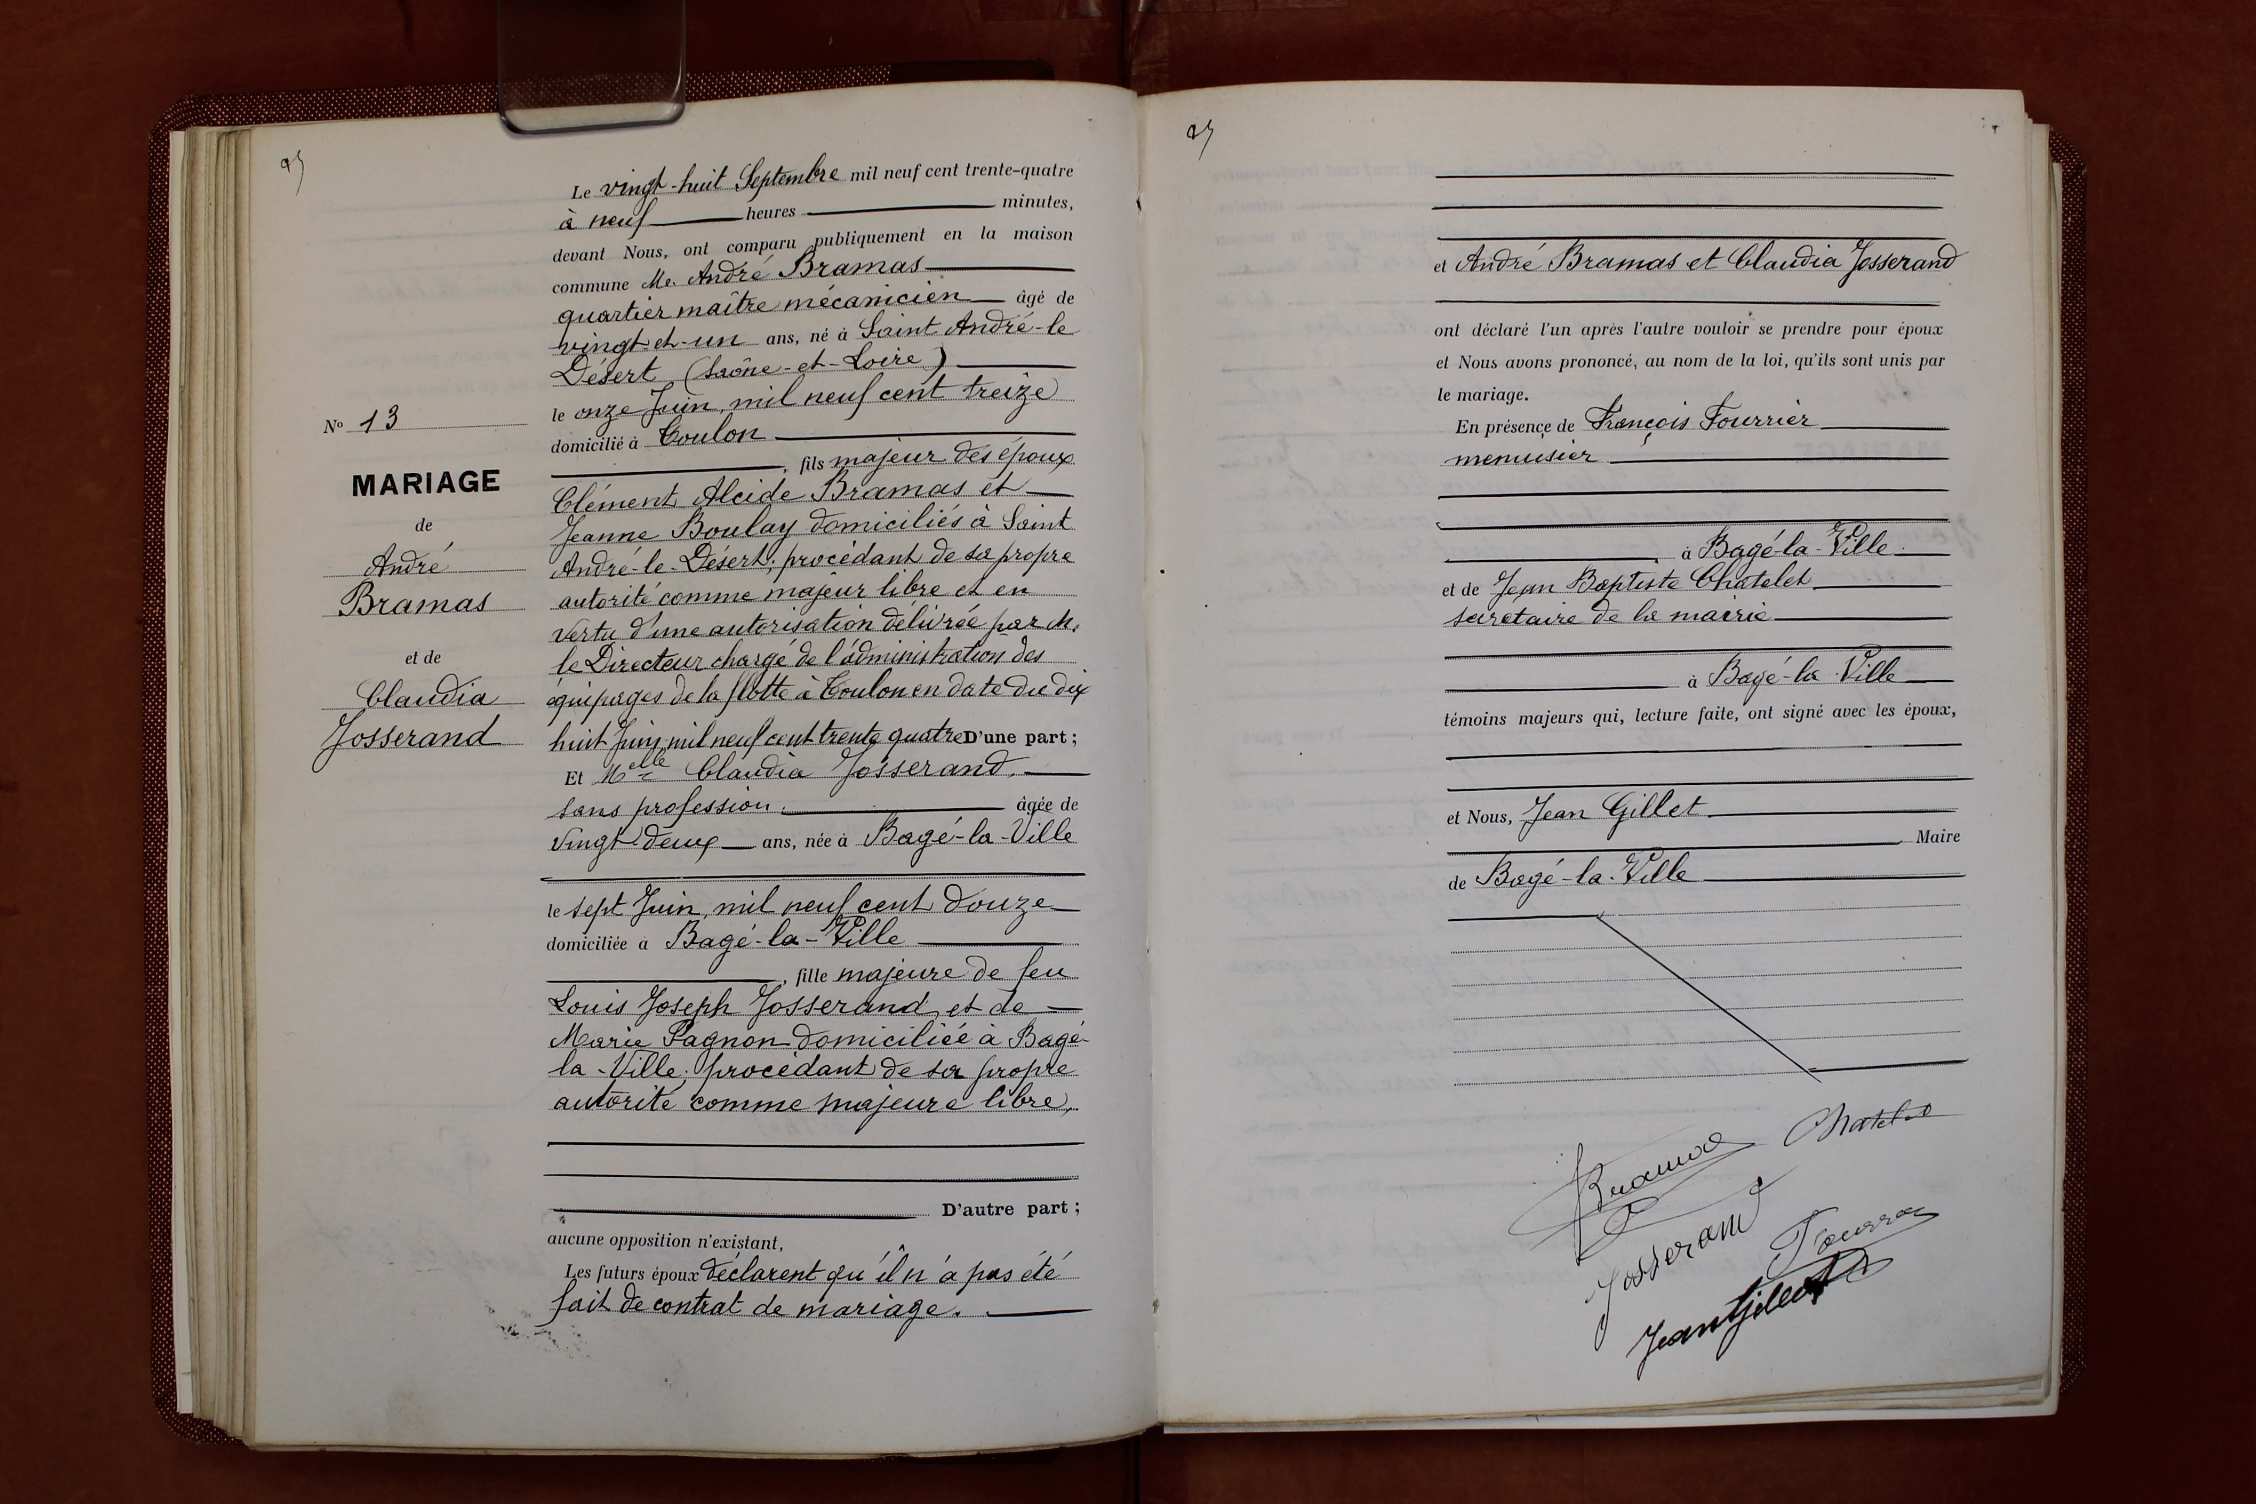 Le vingt-huit Septembre mil neuf cent trente-quatre
à neuf heures minutes,
devant Nous, ont comparu publiquement en la maison
commune Mr. André Bramas
quartier maître mécanicien âgé de
vingt-et-un ans, né à Saint André-le
Désert (Saône-et-Loire)
le onze Juin, mil neuf cent treize
domicilié à Toulon
, fils majeur des époux
Clément Alcide Bramas et
Jeanne Boulay domiciliés à Saint
André-le-Désert; procédant de sa propre
autorité comme majeur libre et en
vertu d'une autorisation délivrée par M.
le Directeur chargé de l'administration des
équipages de la flotte à Toulon en date du dix
huit Juin mil neuf cent trente quatre D'une part ;
Et Melle Claudia Josserand,
sans profession. âgée de
vingt deux ans, née à Bagé-la-Ville
le sept Juin, mil neuf cent douze
domiciliée à Bagé-la-Ville
, fille majeure de feu
Louis Joseph Josserand et de
Marie Pagnon domiciliée à Bagé-
la-Ville; procédant de sa propre
autorité comme majeure libre,
D'autre part ;
aucune opposition n'existant,
Les futurs époux déclarent qu'il n'a pas été
fait de contrat de mariage.
No 13
MARIAGE
de
André
Bramas
et de
Claudia
Josserand
et André Bramas et Claudia Josserand
ont déclaré l'un après l'autre vouloir se prendre pour époux
et Nous avons prononcé, au nom de la loi, qu'ils sont unis par
le mariage.
En présence de François Fourrier
menuisier
à Bagé-la-Ville
et de Jean Baptiste Chatelet
secretaire de la mairie
à Bagé-la-Ville
témoins majeurs qui, lecture faite, ont signé avec les époux,
et Nous, Jean Gillet
Maire
de Bagé-la-Ville
Bramas Chatelet
Josserand
Fourrier
Jean Gillet